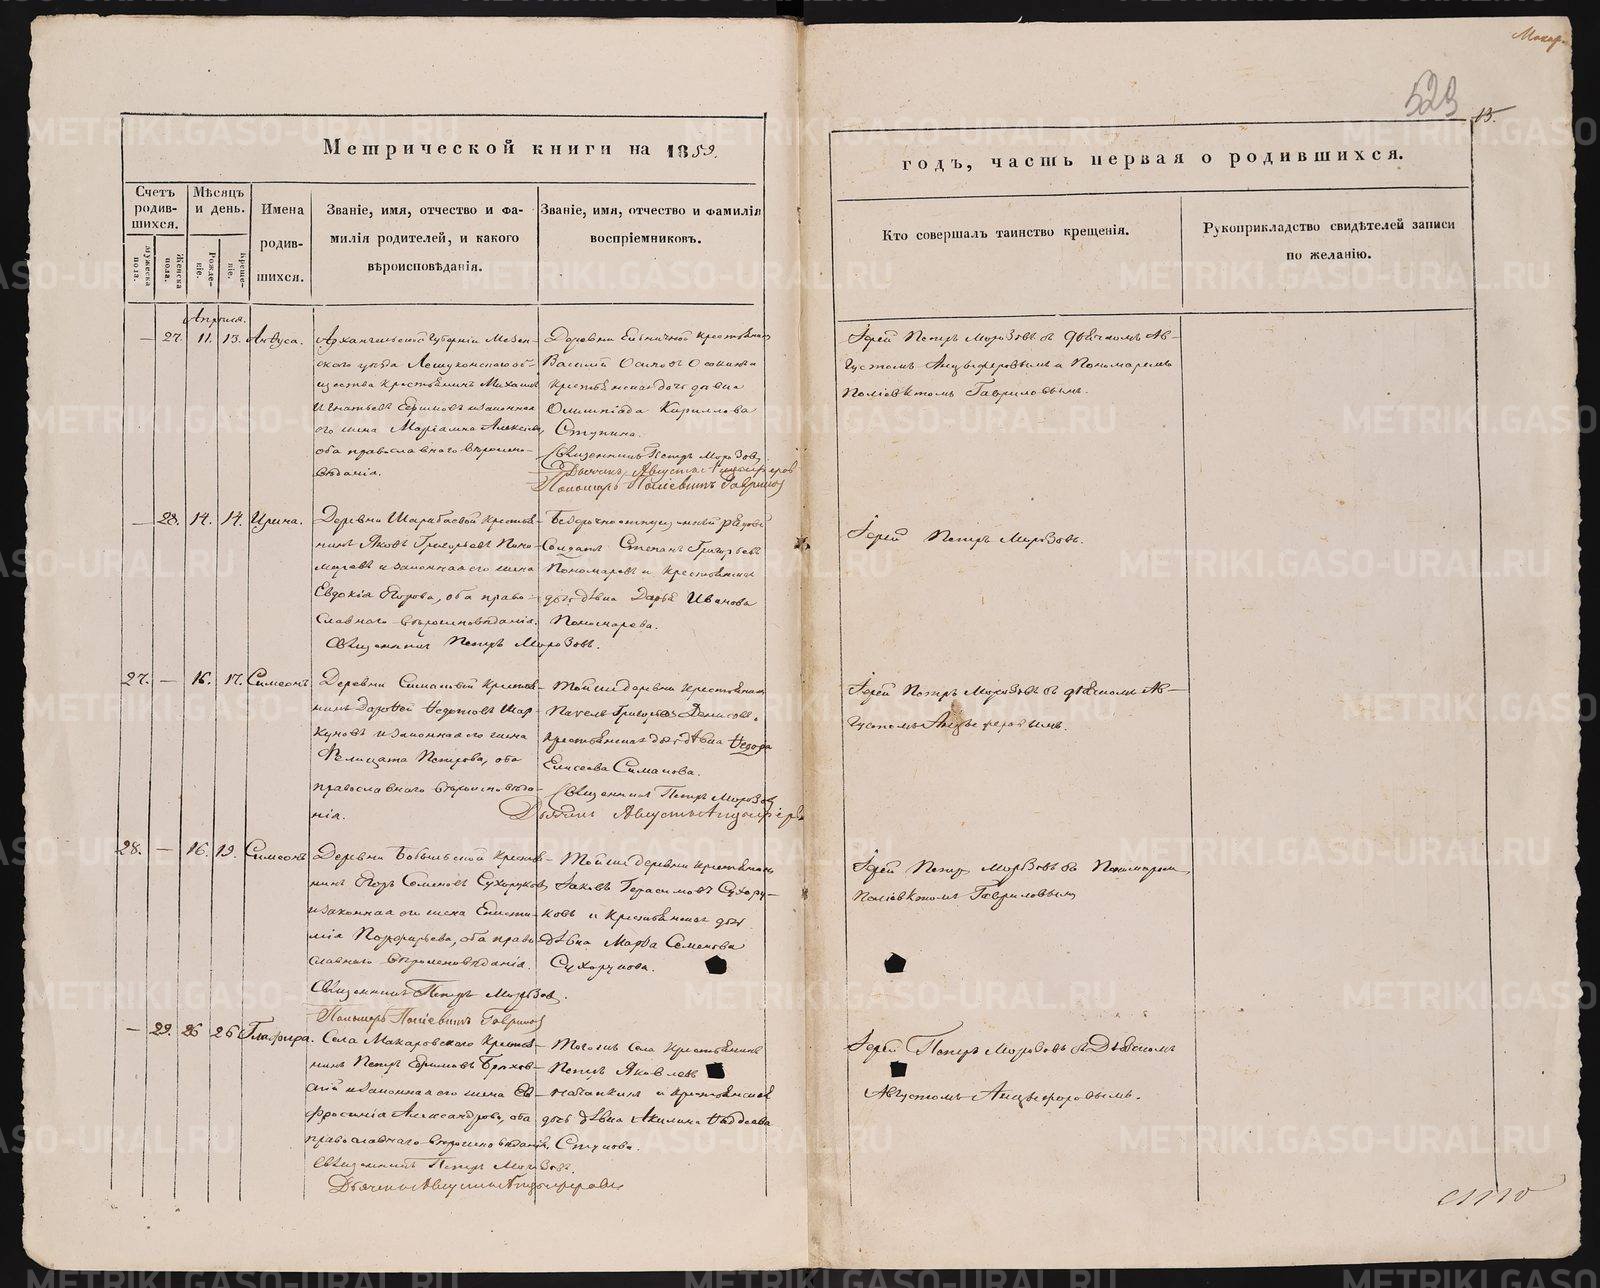 Макар
523
13.
Метрической книги на 1859.
годъ, часть первая о родившихся.
Счетъ родив-шихся.
Мѣсяцъ и день.
Имена родив-шихся.
Званіе, имя, отчество и фа-
милія родителей, и какого
вѣроисповѣданія.
Званіе, имя, отчество и фамилія
воспріемниковъ.
Кто совершалъ таинство крещенія.
Рукоприкладство свидѣтелей записи
по желанію.
Мужеска пола.
Женска пола.
Рожде-ніе.
Креще-ніе.
Апрѣля.
— 27. 11. 13. Анѳуса.
Архангельской Губерніи Мезен-
скаго уѣзда Лешуконскаго об-
щества крестьянинъ Михаилъ
Игнатьевъ Ефимовъ и законная
его жена Маріамна Алексѣева,
оба православнаго вѣроиспо-
вѣданія.
Деревни крестьянинъ
Василій Осиповъ
крестьянская дочь дѣвка
Олимпіада Кириллова
Ступина.
Священникъ Петръ Морозовъ
Дьячекъ Августъ Анцыферовъ
Пономарь Поліевктъ Гавриловъ
Іерей Петръ Морозовъ съ дьячкомъ Ав-
густомъ Анцыферовымъ и Пономаремъ
Поліевктомъ Гавриловымъ.
— 28. 14. 14. Ирина.
Деревни крестья-
нинъ Яковъ Григорьевъ Поно-
маревъ и законная его жена
Евдокія Егорова, оба право-
славнаго вѣроисповѣданія.
Священникъ Петръ Морозовъ.
Безсрочноотпускный рядовой
Солдатъ Степанъ Григорьевъ
Пономаревъ и крестьянская
дочь дѣвка Дарья Иванова
Пономарева.
Іерей Петръ Морозовъ.
27. — 16. 17. Симеонъ.
Деревни Симановой крестья-
нинъ Дороѳей Ѳедотовъ
и законная его жена
Фелицата Петрова, оба
православнаго вѣроисповѣда-
нія.
Той же деревни крестьянинъ
Павелъ Григорьевъ Денисовъ,
крестьянская дочь дѣвка Ѳедора
Елисеева Симанова.
Священникъ Петръ Морозовъ
Дьячекъ Августъ Анцыферовъ
Іерей Петръ Морозовъ съ дьячкомъ Ав-
густомъ Анцыферовымъ.
28. — 16. 19. Симеонъ
Деревни крестья-
нинъ Егоръ Семеновъ Сухоруковъ
и законная его жена Еписти-
мія Порфирьева, оба право-
славнаго вѣроисповѣданія.
Священникъ Петръ Морозовъ.
Пономарь Поліевктъ Гавриловъ
Той же деревни крестьянинъ
Іаковъ Герасимовъ Сухору-
ковъ и крестьянская дочь
дѣвка Марѳа Семенова
Сухорукова.
Іерей Петръ Морозовъ съ Пономаремъ
Поліевктомъ Гавриловымъ
— 29. 26 26 Глафира.
Села Макаровскаго крестья-
нинъ Петръ Ефимовъ Брюхов-
и законная его жена Ев-
фросинія Александрова, оба
православнаго вѣроисповѣданія.
Священникъ Петръ Морозовъ.
Дьячекъ Августъ Анцыферовъ
Тогожъ села крестьянинъ
Петръ Яковлевъ
и крестьянская
дочь дѣвка Акилина Ѳаддеева
Ступова.
Іерей Петръ Морозовъ съ Дьячкомъ
Августомъ Анцыферовымъ.
METRIKI.GASO-URAL.RU